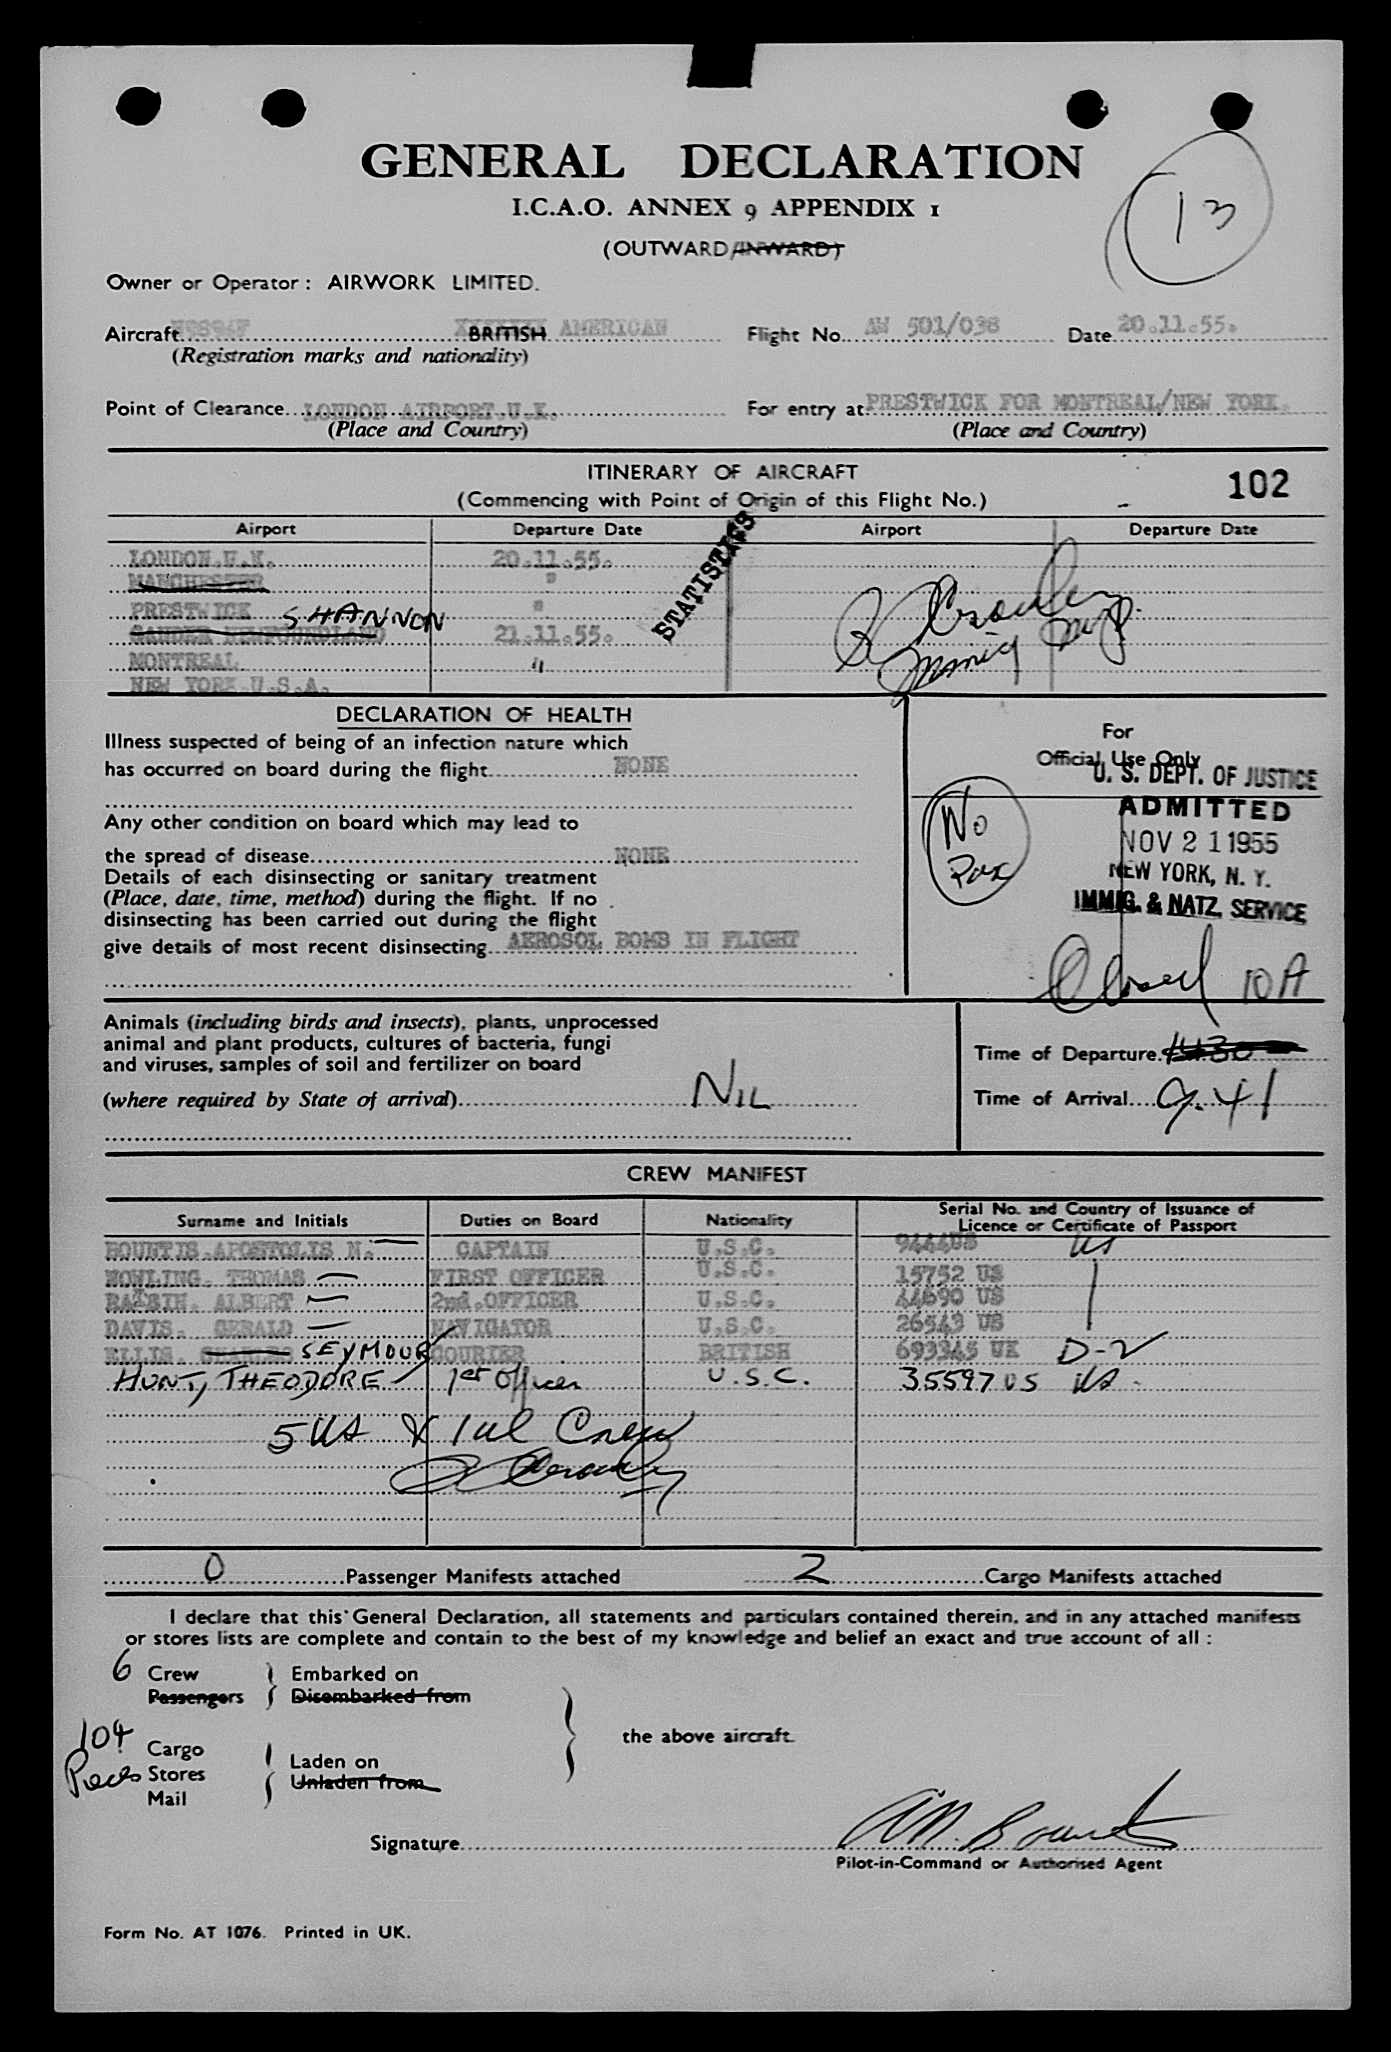 GENERAL DECLARATION
I.C.A.O. ANNEX 9 APPENDIX 1
13
(OUTWARD/INWARD)
Owner or Operator: AIRWORK LIMITED.
Aircraft BRITISH AMERICAN Flight No. AW 501/038 Date 20.11.55.
(Registration marks and nationality)
Point of Clearance LONDON AIRPORT.U.K. For entry at PRESTWICK FOR MONTREAL/NEW YORK.
(Place and Country) (Place and Country)
ITINERARY OF AIRCRAFT
102
(Commencing with Point of Origin of this Flight No.)
Airport Departure Date Airport Departure Date
STATISTICS
LONDON.U.K. 20.11.55.
MANCHESTER "
PRESTWICK SHANNON "
GANDER NEWFOUNDLAND 21.11.55.
MONTREAL "
NEW YORK.U.S.A.
DECLARATION OF HEALTH
Illness suspected of being of an infection nature which
has occurred on board during the flight NONE
Any other condition on board which may lead to
the spread of disease NONE
Details of each disinsecting or sanitary treatment
(Place, date, time, method) during the flight. If no
disinsecting has been carried out during the flight
give details of most recent disinsecting AEROSOL BOMB IN FLIGHT
For
Official Use Only
U. S. DEPT. OF JUSTICE
ADMITTED
NOV 21 1955
NEW YORK, N. Y.
IMMIG. & NATZ. SERVICE
No
Pax
Closed 10A
Animals (including birds and insects), plants, unprocessed
animal and plant products, cultures of bacteria, fungi
and viruses, samples of soil and fertilizer on board
(where required by State of arrival) NIL
Time of Departure 1430
Time of Arrival 9.41
CREW MANIFEST
Surname and Initials Duties on Board Nationality Serial No. and Country of Issuance of Licence or Certificate of Passport
BOUNTIS.APOSTOLIS N. CAPTAIN U.S.C. 94440S US
NOWLING. THOMAS FIRST OFFICER U.S.C. 15752 US
ALBERT 2nd.OFFICER U.S.C. 44690 US
DAVIS. GERALD NAVIGATOR U.S.C. 26543 US
ELLIS. CHARLES SEYMOUR COURIER BRITISH 693345 UK D-2
HUNT, THEODORE 1st Officer U.S.C. 35597 US US
5 US & 1 al Crew
0 Passenger Manifests attached 2 Cargo Manifests attached
I declare that this General Declaration, all statements and particulars contained therein, and in any attached manifests
or stores lists are complete and contain to the best of my knowledge and belief an exact and true account of all :
6 Crew Embarked on
Passengers Disembarked from
the above aircraft.
104 Cargo Laden on
Pieces Stores Unladen from
Mail
Signature
Pilot-in-Command or Authorised Agent
Form No. AT 1076. Printed in UK.